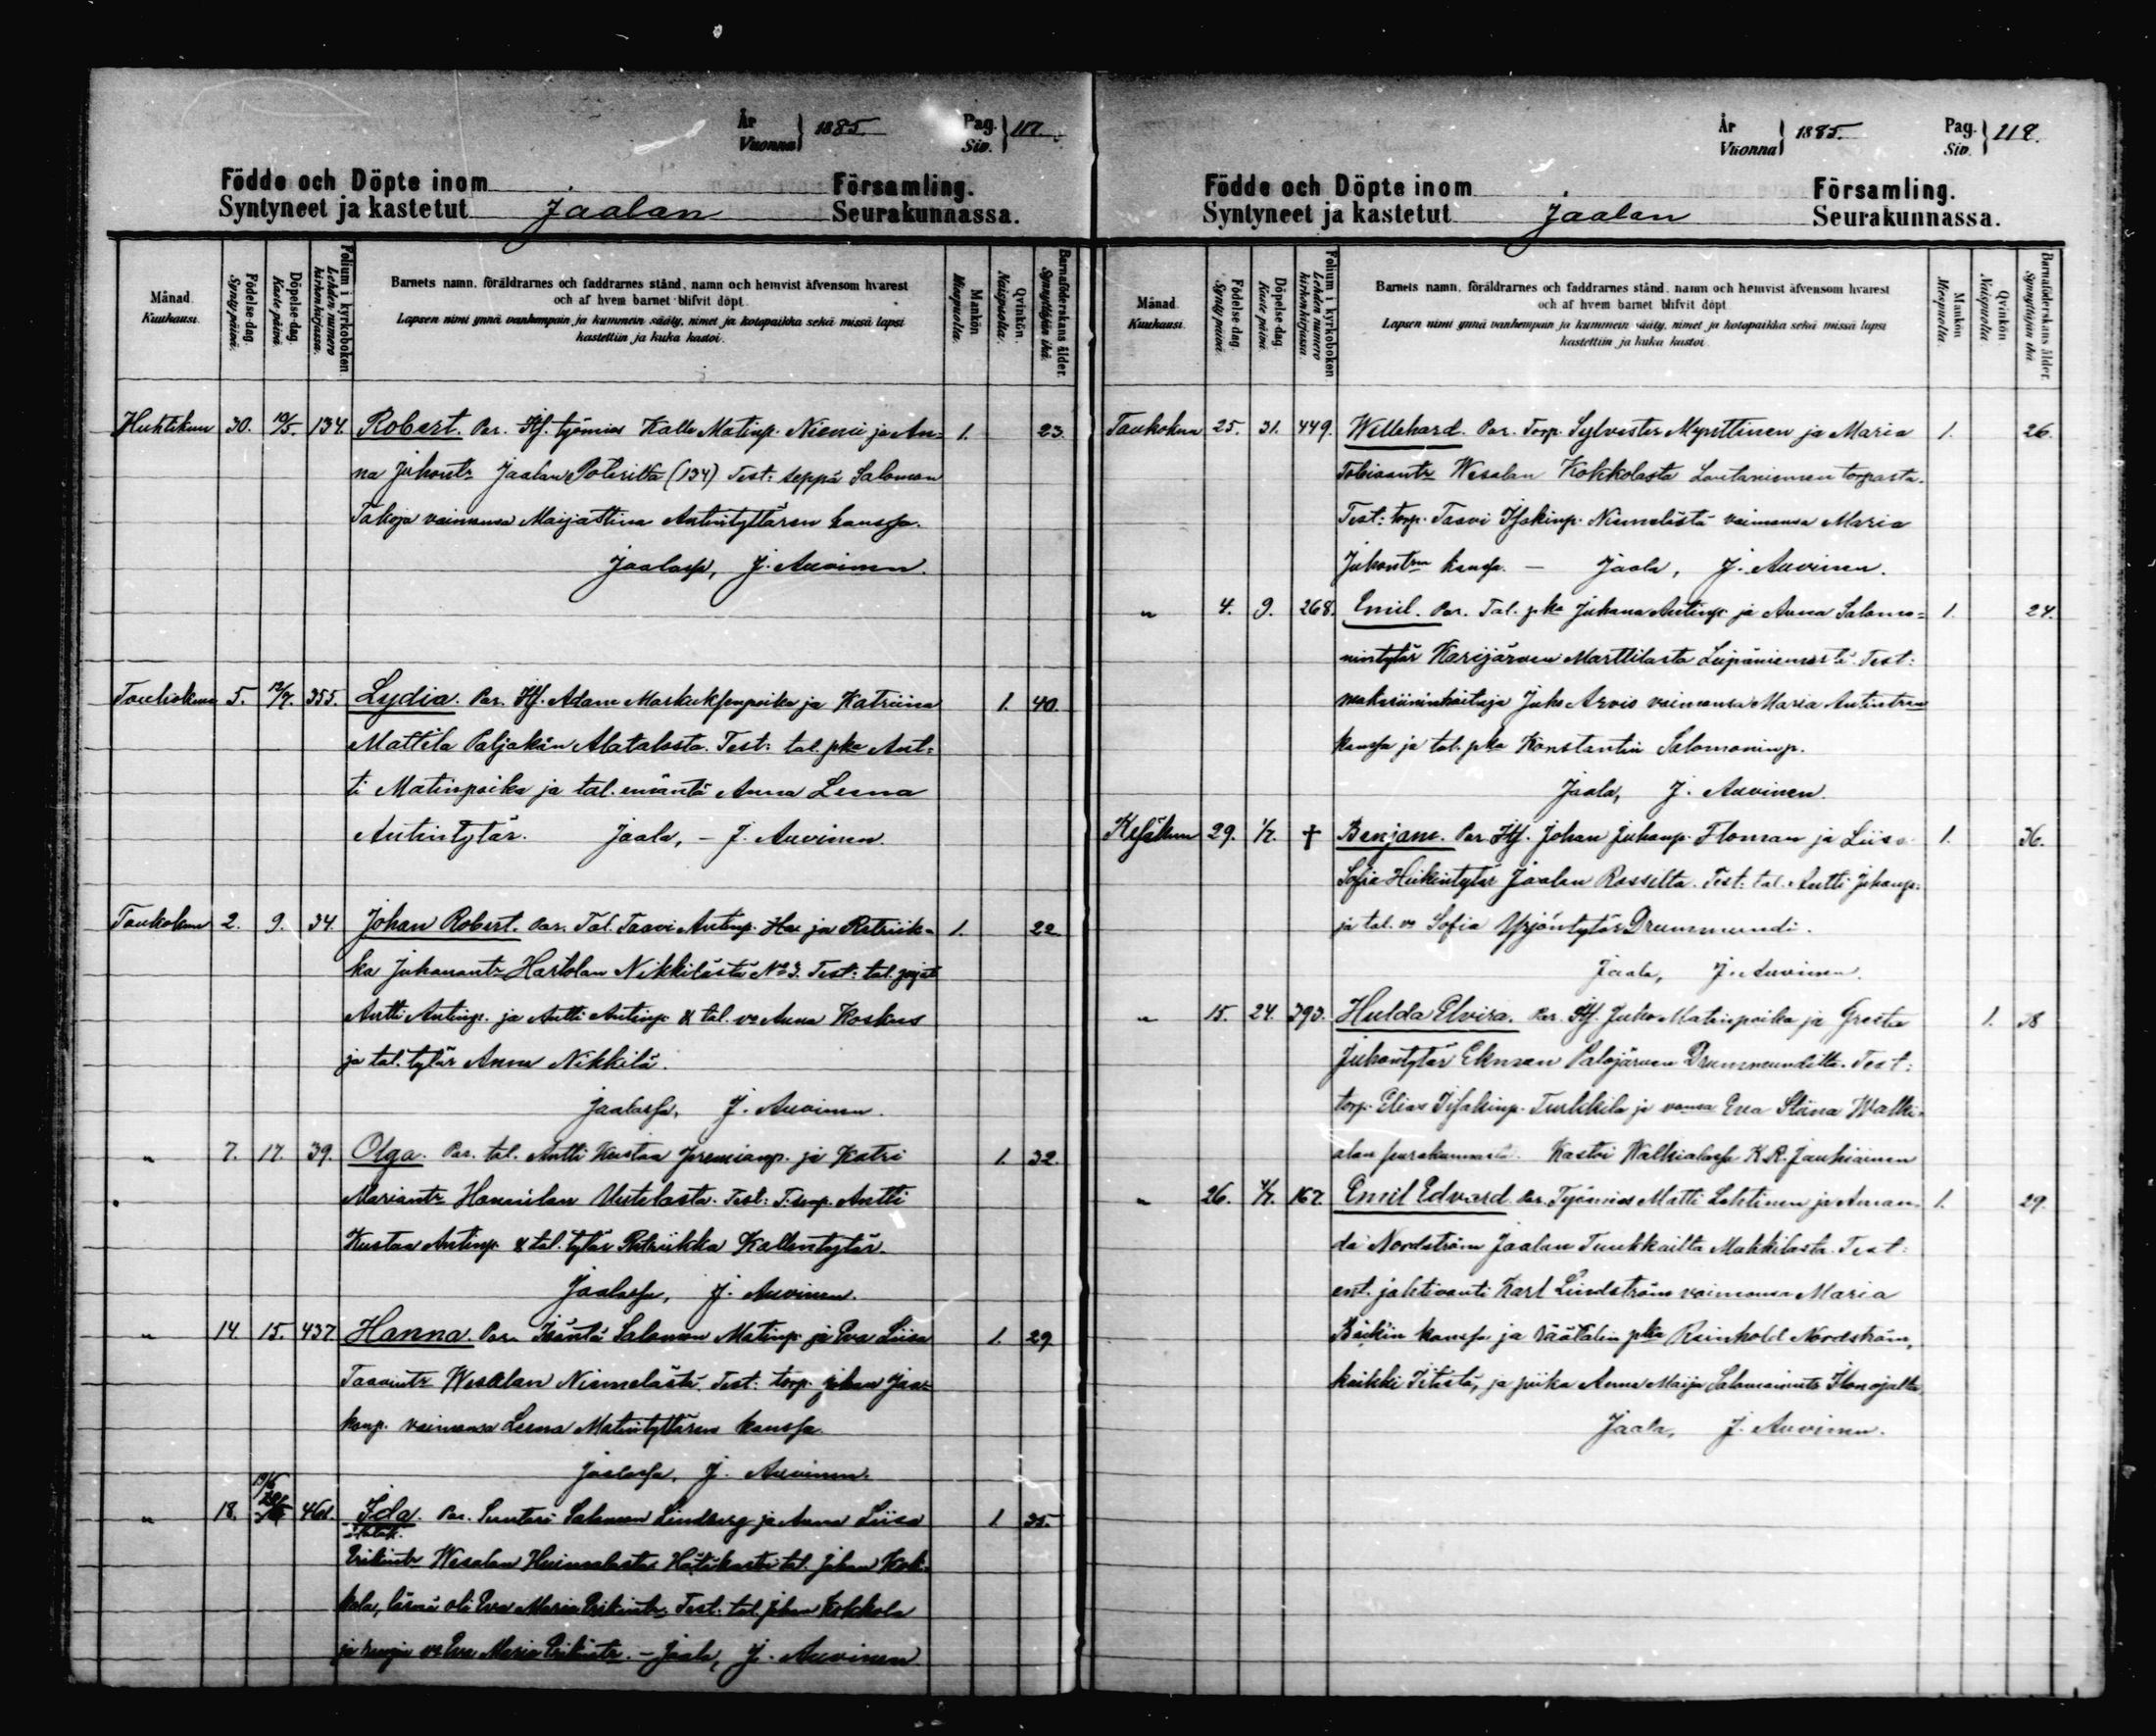 År
Vuonna } 1885.
Pag.
Siv. } 117.
Födde och Döpte inom Församling.
Syntyneet ja kastetut Jaalan Seurakunnassa.
Månad. Kuukausi.
Födelse-dag. Synty päivä.
Döpelse-dag. Kaste päivä.
Folium i kyrkoboken Lehden numero kirkonkirjassa.
Barnets namn, föräldrarnes och faddrarnes stånd, namn och hemvist äfvensom hvarest
och af hvem barnet blifvit döpt.
Lapsen nimi ynnä vanhempain ja kummein sääty, nimet ja kotopaikka sekä missä lapsi
kastettiin ja kuka kastoi.
Mankön Miespuolta.
Qvinkön. Naispuolta.
Barnaföderskans ålder. Synnyttäjän ikä.
Huhtikuu 30. 10/5. 134. Robert. Par. Itf. työmies Kalle Matinp. Niemi ja An- 1. 23.
na Juhontr Jaalan (134) Test: seppä Salomon
Takoja vaimonsa Maijastina Antintyttären kanssa.
Jaalassa, J. Auvinen.
Toukokuu 5. 355. Lydia. Par. Itf. Adam Markuksenpoika ja Katriina 1. 40.
Mattila Paljakan Alatalosta. Test: tal. pka Ant-
ti Matinpoika ja tal. emäntä Anna Leena
Antintytär. Jaala, – J. Auvinen.
Toukokuu 2. 9. 34. Johan Robert. Par. Tal. Taavi Antinp. ja Retriik- 1. 22
ka Juhanantr Hartolan Nikkilästä No 3. Test: tal. pojat
Antti Antinp. ja Antti Antinp. & tal. vo Anna Koskus
ja tal. tytär Anna Nikkilä.
Jaalassa, J. Auvinen.
" 7. 17. 39. Olga. Par. tal. Antti Kustaa Jeremianp. ja Katri 1. 32.
Mariantr Huunilan Uutelasta. Test: Antti
Kustaa Antinp. & tal. tytär Retriikka Kallentytär.
Jaalassa, J. Auvinen.
" 14. 15. 437 Hanna. Par. Isäntä Salomon Matinp. ja Eva Liisa 1. 29
Taavintr Wesalan Niemelästä. Test: torp. Johan Jaa-
konp. vaimonsa Leena Matintyttären kanssa.
Jaalassa, J. Auvinen.
" 18. Ida. Par. Suutari Salomon Lindberg ja Anna Liisa 1. 35.
Erikintr Wesalan Hätäkastoi tal. Johan Kok-
kola, läsnä oli Eva Maria Erikintr. Test: tal. Johan Kokkola
ja vo Eva Maria Erikintr. – Jaala, J. Auvinen.
År
Vuonna } 1885.
Pag.
Siv. } 118.
Födde och Döpte inom Församling.
Syntyneet ja kastetut Jaalan Seurakunnassa.
Månad. Kuukausi.
Födelse-dag. Synty päivä.
Döpelse-dag. Kaste päivä.
Folium i kyrkoboken Lehden numero kirkonkirjassa.
Barnets namn, föräldrarnes och faddrarnes stånd, namn och hemvist äfvensom hvarest
och af hvem barnet blifvit döpt.
Lapsen nimi ynnä vanhempain ja kummein sääty, nimet ja kotopaikka sekä missä lapsi
kastettiin ja kuka kastoi.
Mankön Miespuolta.
Qvinkön Naispuolta.
Barnaföderskans ålder. Synnyttäjän ikä.
Toukokuu 25. 31. 449. Willehard. Par. Torp. Sylvester Mynttinen ja Maria 1. 26.
Tobiaantr Wesalan Kokkolasta Lautaniemen torpasta.
Test: torp. Taavi Isakinp. Niemelästä vaimonsa Maria
Juhontrn kanssa. – Jaala, J. Auvinen.
" 4. 9. 268. Emil. Par. Tal. pka Juhana Antinp. ja Anna Salomo- 1. 24.
nintytär Karijärven Marttilasta Test:
makasiininhoitaja Juho Arvio vaimonsa Maria Antintrn
kanssa ja tal. pka Konstantin Salomoninp.
Jaala, J. Auvinen.
Kesäkuu 29. 1/7. † Benjam. Par. Itf. Johan Juhanp. Floman ja Liisa 1. 36.
Sofia Heikintytär Jaalan Rossilta. Test: tal. Antti Johanp.
ja tal. vo Sofia Yrjöntytär Drummundi.
Jaala, J. Auvinen.
" 15. 24. 393. Hulda Elvira. Par. Itf. Juho Matinpoika ja Greeta 1. 38
Juhontytär Ekman Palojärven Drummundilta. Test:
torp. Elias Isakinp. Turkkila ja vaimonsa Eva Stiina Walki-
alan seurakunnasta. Kastoi Walkialassa K. R. Jauhiainen
" 26. 4/7. 167. Emil Edvard. Par. Työmies Matti Lehtinen ja Aman- 1. 29.
da Nordström Jaalan Tuukkailta Makkilasta. Test:
ent. jahtivouti Karl Lindström vaimonsa Maria
Böökin kanssa ja räätälin pka Reinhold Nordström,
kaikki Iitistä, ja piika Anna Maija Salomonintr
Jaala, J. Auvinen.